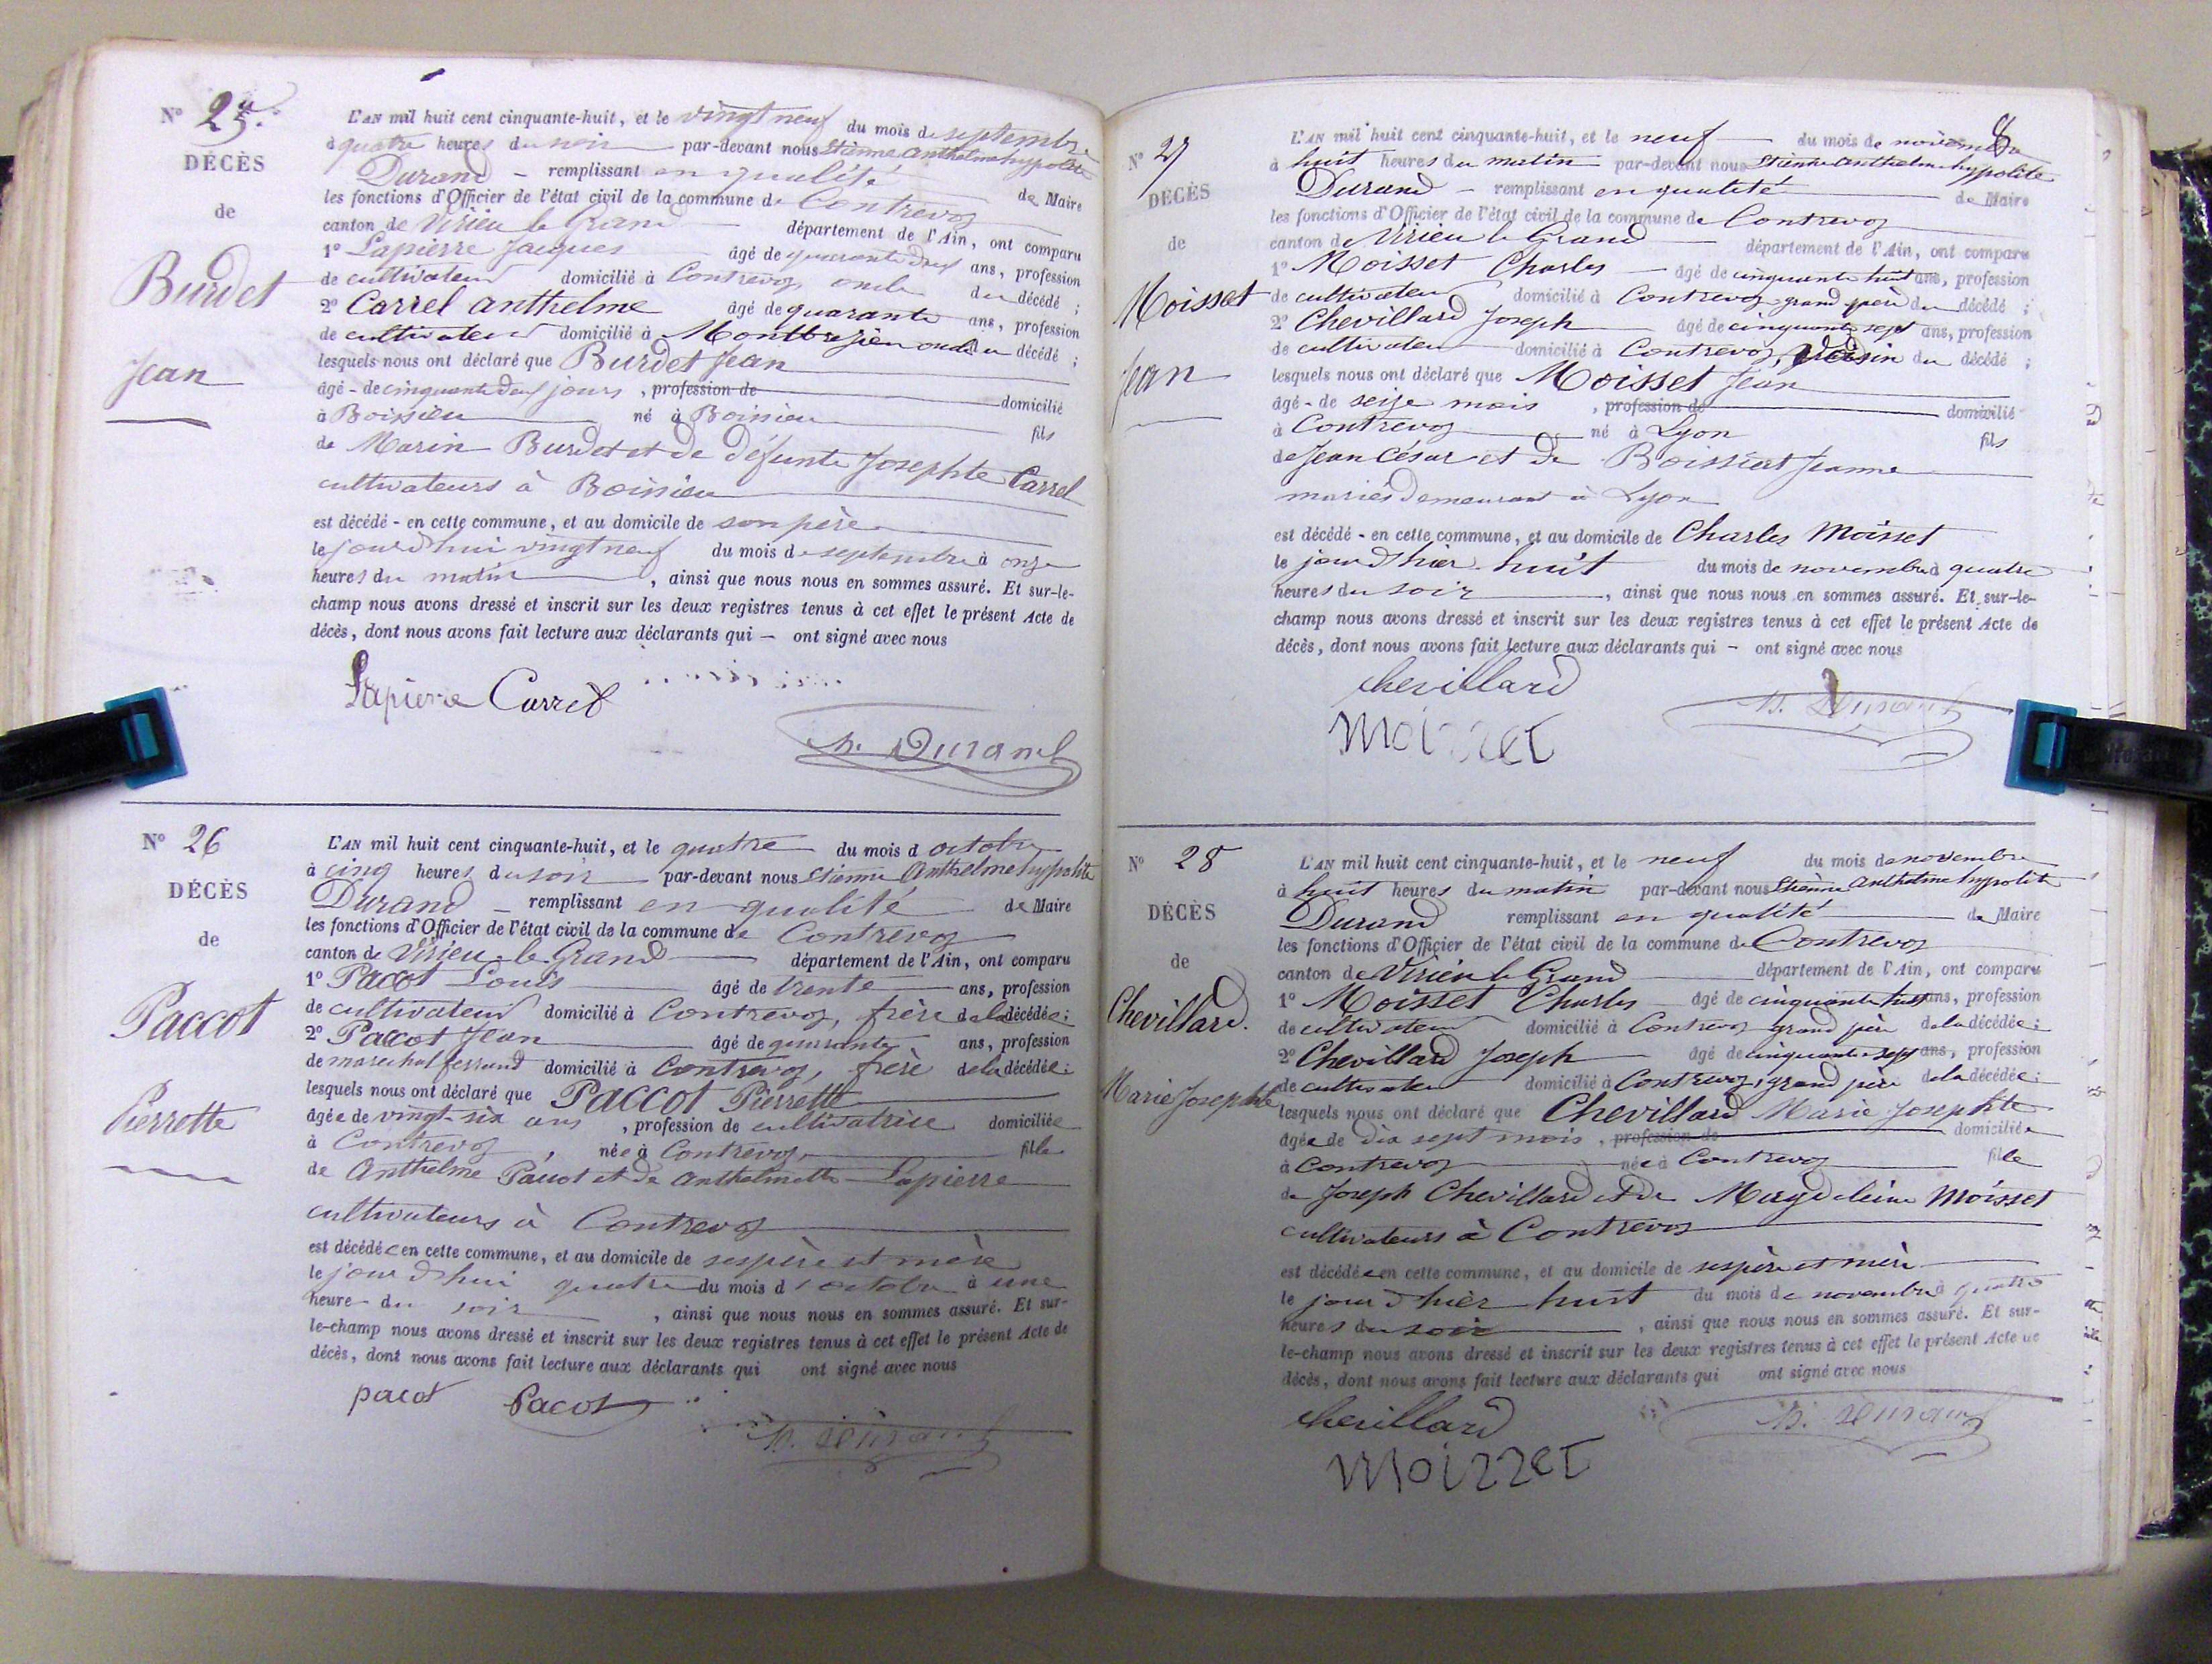 Nº 25.
DÉCÈS
de
Burdet
Jean
L'AN mil huit cent cinquante-huit, et le vingt neuf du mois de septembre
à quatre heures du soir par-devant nous Etienne Anthelme hypolite
Durand - remplissant en qualité de Maire
les fonctions d'Officier de l'état civil de la commune de Contrevoz
canton de Virieu le Grand département de l'Ain, ont comparu
1º Lapierre Jacques âgé de quarante deux ans, profession
de cultivateur domicilié à Contrevoz oncle du décédé ;
2º Carrel anthelme âgé de quarante ans, profession
de cultivateur domicilié à oncle du décédé ;
lesquels nous ont déclaré que Burdet Jean
âgé - de cinquante deux jours , profession de domicilié
à Boissieu né à Boissieu fils
de Marin Burdet et de défunte Josephte Carrel
cultivateurs à Boissieu
est décédé - en cette commune, et au domicile de son père
le jourd'hui vingt neuf du mois de septembre à onze
heures du matin , ainsi que nous nous en sommes assuré. Et sur-le-
champ nous avons dressé et inscrit sur les deux registres tenus à cet effet le présent Acte de
décès, dont nous avons fait lecture aux déclarants qui - ont signé avec nous
Lapierre Carrel
h. Durand
Nº 26
DÉCÈS
de
Paccot
Pierrette
L'AN mil huit cent cinquante-huit, et le quatre du mois d octobre
à cinq heures du soir par-devant nous Etienne Anthelme hypolite
Durand - remplissant en qualité de Maire
les fonctions d'Officier de l'état civil de la commune de Contrevoz
canton de Virieu-le-Grand département de l'Ain, ont comparu
1º Paccot Louis âgé de trente ans, profession
de cultivateur domicilié à Contrevoz, frère de la décédée ;
2º Paccot Jean âgé de quarante ans, profession
de marechal ferrand domicilié à Contrevoz, frère de la décédée ;
lesquels nous ont déclaré que Paccot Pierrette
âgée de vingt-six ans , profession de cultivatrice domiciliée
à Contrevoz , née à Contrevoz, fille
de Anthelme Paccot et de Anthelmette Lapierre
cultivateurs à Contrevoz
est décédée en cette commune, et au domicile de ses père et mère
le jour d'hui quatre du mois d'octobre à une
heure du soir , ainsi que nous nous en sommes assuré. Et sur-
le-champ nous avons dressé et inscrit sur les deux registres tenus à cet effet le présent Acte de
décès, dont nous avons fait lecture aux déclarants qui ont signé avec nous
pacot Pacot
h. Durand
8
Nº 27
DÉCÈS
de
Moisset
Jean
L'AN mil huit cent cinquante-huit, et le neuf du mois de novembre
à huit heures du matin par-devant nous Etienne Anthelme hypolite
Durand - remplissant en qualité de Maire
les fonctions d'Officier de l'état civil de la commune de Contrevoz
canton de Virieu le Grand département de l'Ain, ont comparu
1º Moisset Charles âgé de cinquante huit ans, profession
de cultivateur domicilié à Contrevoz grand père du décédé ;
2º Chevillard Joseph âgé de cinquante sept ans, profession
de cultivateur domicilié à Contrevoz, voisin du décédé ;
lesquels nous ont déclaré que Moisset Jean
âgé - de seize mois , profession de domicilié
à Contrevoz né à Lyon fils
de Jean César et de Jeanne
mariés demeurant à Lyon
est décédé - en cette commune, et au domicile de Charles Moisset
le jour d'hier huit du mois de novembre à quatre
heures du soir , ainsi que nous nous en sommes assuré. Et sur-le-
champ nous avons dressé et inscrit sur les deux registres tenus à cet effet le présent Acte de
décès, dont nous avons fait lecture aux déclarants qui - ont signé avec nous
chevillard
h. Durand
moisset
Nº 28
DÉCÈS
de
Chevillard.
Marie Josephte
L'AN mil huit cent cinquante-huit, et le neuf du mois de novembre
à huit heures du matin par-devant nous Etienne Anthelme hypolite
Durand remplissant en qualité de Maire
les fonctions d'Officier de l'état civil de la commune de Contrevoz
canton de Virieu le Grand département de l'Ain, ont comparu
1º Moisset Charles âgé de cinquante huit ans, profession
de cultivateur domicilié à Contrevoz grand père de la décédée ;
2º Chevillard Joseph âgé de cinquante sept ans, profession
de cultivateur domicilié à Contrevoz, grand père de la décédée ;
lesquels nous ont déclaré que Chevillard Marie Josephte
âgée de dix sept mois , profession de domiciliée
à Contrevoz née à Contrevoz fille
de Joseph Chevillard et de Magdeleine Moisset
cultivateurs à Contrevoz
est décédée en cette commune, et au domicile de ses père et mère
le jour d'hier huit du mois de novembre à quatre
heures du soir , ainsi que nous nous en sommes assuré. Et sur-
le-champ nous avons dressé et inscrit sur les deux registres tenus à cet effet le présent Acte de
décès, dont nous avons fait lecture aux déclarants qui ont signé avec nous
chevillard
h. Durand
moisset